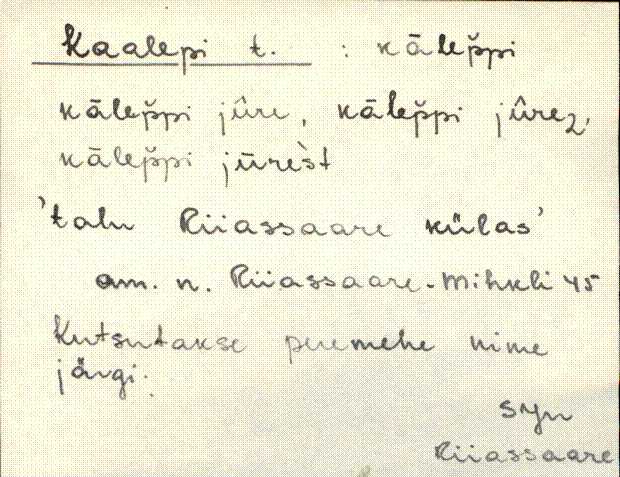 Kaalepi t. : kāle̬p̆pi
kālep̆pi jûre, kālep̆pi jûrez,
kālep̆pi jūrest
'talu Riiassaare külas'
am. n. Riiassaare-Mihkli 45
Kutsutakse peremehe nime
järgi.
Syn
Riiassaare